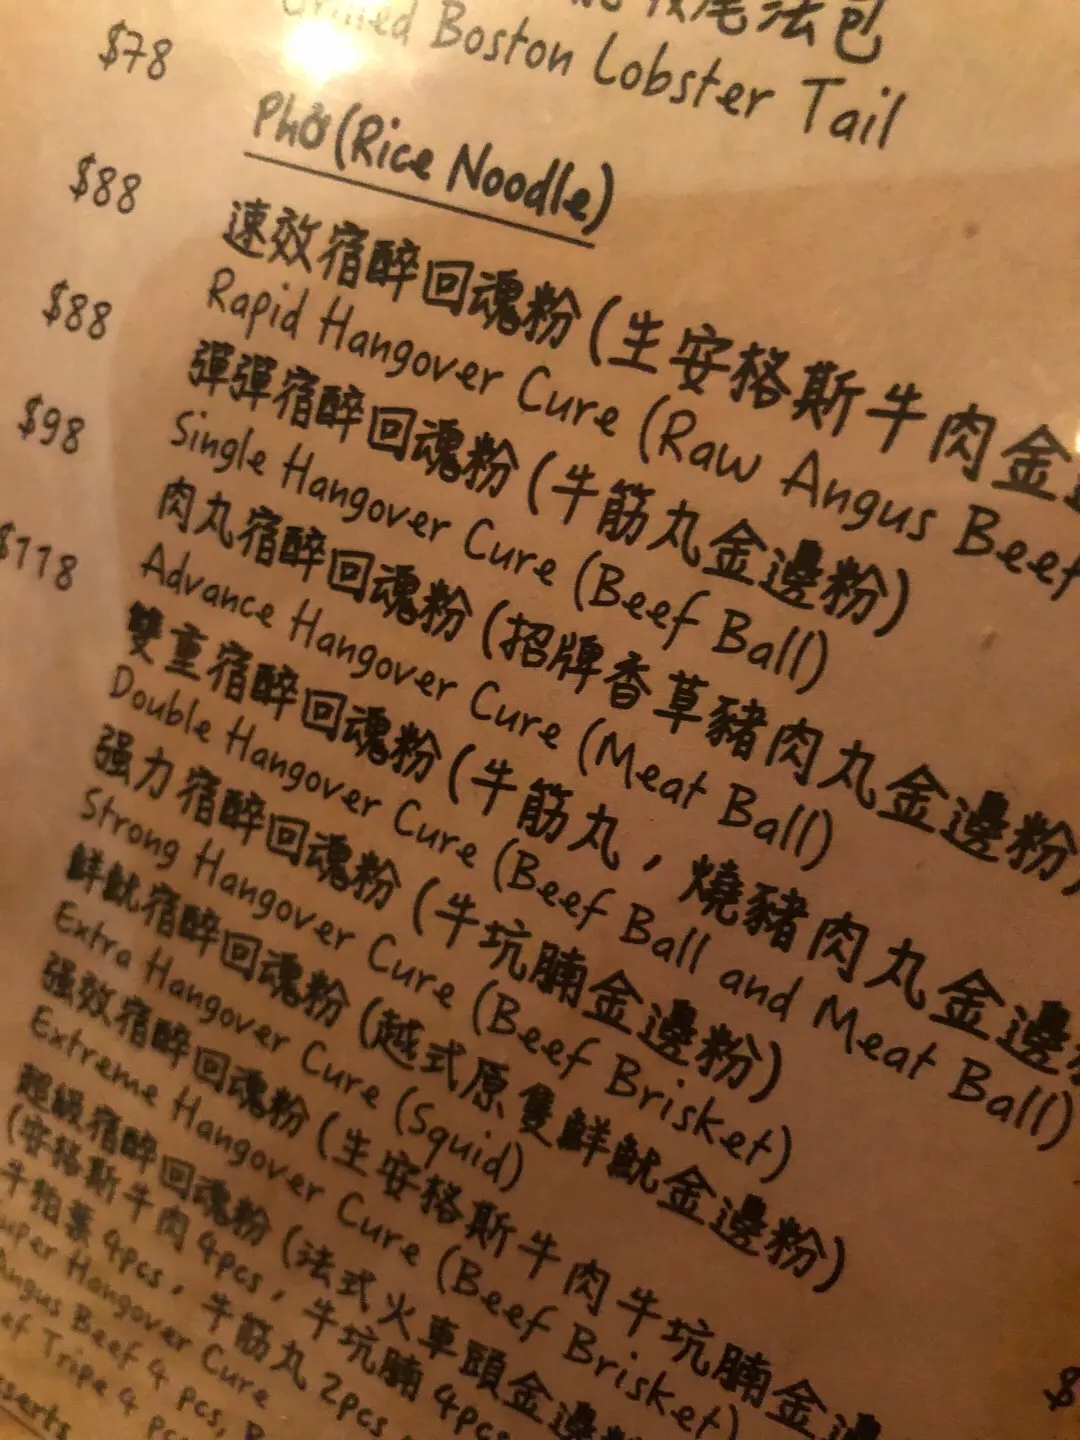 尾法包
Grilled Boston Lobster Tail
$78
Phở (Rice Noodle)
$88
速效宿醉回魂粉 (生安格斯牛肉金
Rapid Hangover Cure (Raw Angus Beef
$88
彈彈宿醉回魂粉 (牛筋丸金邊粉)
Single Hangover Cure (Beef Ball)
$98
肉丸宿醉回魂粉 (招牌香草豬肉丸金邊粉)
Advance Hangover Cure (Meat Ball)
$118
雙重宿醉回魂粉 (牛筋丸，燒豬肉丸金邊
Double Hangover Cure (Beef Ball and Meat Ball)
强力宿醉回魂粉 (牛坑腩金邊粉)
Strong Hangover Cure (Beef Brisket)
鮮魷宿醉回魂粉 (越式原隻鮮魷金邊粉)
Extra Hangover Cure (Squid)
强效宿醉回魂粉 (生安格斯牛肉牛坑腩金邊
Extreme Hangover Cure (Beef Brisket)
超級宿醉回魂粉 (法式火車頭金邊粉
(安格斯牛肉 4pcs，牛坑腩 4pcs
牛柏葉 4pcs，牛筋丸 2pcs
Super Hangover Cure
Angus Beef 4 pcs, B
ef Tripe 4 pcs
sserts
$